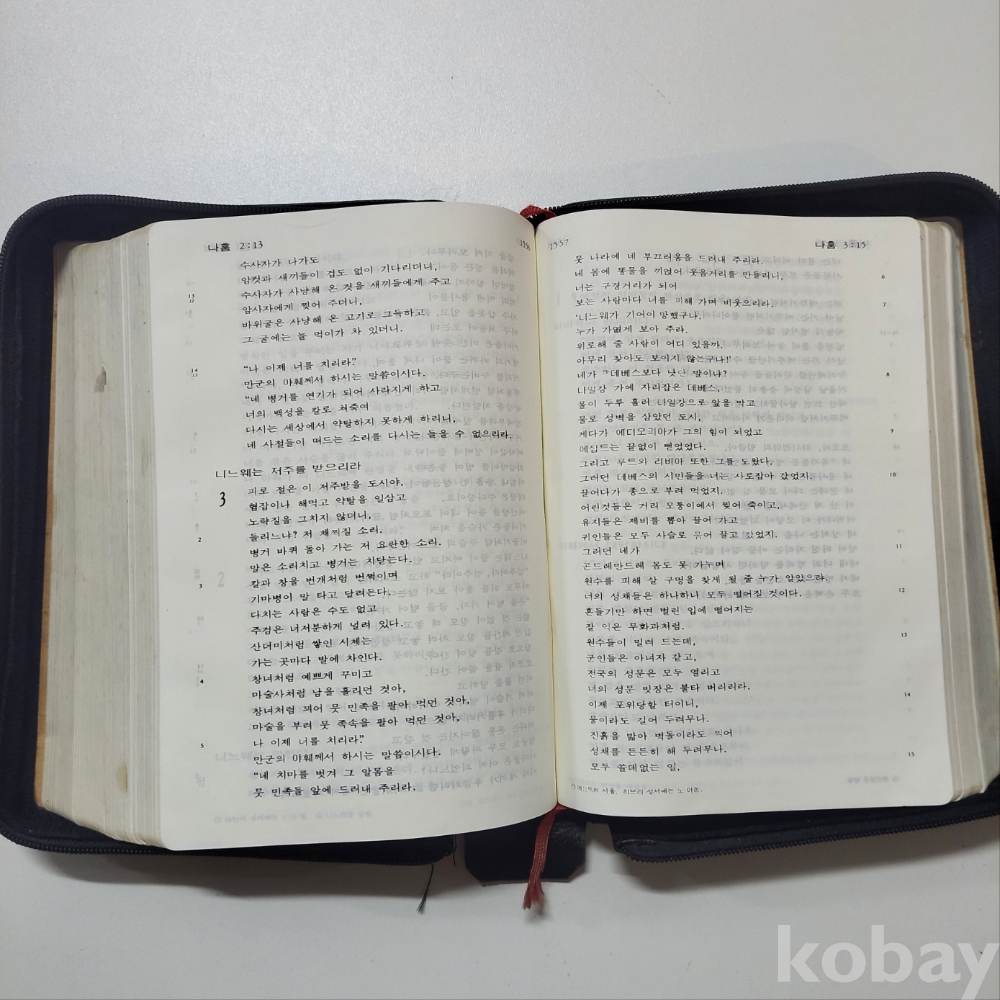 나훔 2:13
수사자가 나가도
암컷과 새끼들이 겁도 없이 기다리더니,
13 수사자가 사냥해 온 것을 새끼들에게 주고
12 암사자에게 찢어 주더니,
바위굴은 사냥해 온 고기로 그득하고
그 굴에는 늘 먹이가 차 있더니.
14 "나 이제 너를 치리라."
13 만군의 야훼께서 하시는 말씀이시다.
"네 병거를 연기가 되어 사라지게 하고
너의 백성을 칼로 쳐죽여
다시는 세상에서 약탈하지 못하게 하리니,
네 사절들이 떠드는 소리를 다시는 들을 수 없으리라.
니느웨는 저주를 받으리라
3 피로 절은 이 저주받을 도시야,
협잡이나 해먹고 약탈을 일삼고
노략질을 그치지 않더니,
2 들리느냐? 저 채찍질 소리.
병거 바퀴 돌아 가는 저 요란한 소리.
말은 소리치고 병거는 치닫는다.
3 칼과 창을 번개처럼 번쩍이며
기마병이 말 타고 달려든다.
다치는 사람은 수도 없고
주검은 너저분하게 널려 있다.
산더미처럼 쌓인 시체는
가는 곳마다 발에 차인다.
4 창녀처럼 예쁘게 꾸미고
마술사처럼 남을 홀리던 것아,
창녀처럼 꾀어 뭇 민족을 팔아 먹던 것아,
마술을 부려 뭇 족속을 팔아 먹던 것아,
5 나 이제 너를 치리라."
만군의 야훼께서 하시는 말씀이시다.
"네 치마를 벗겨 그 알몸을
뭇 민족들 앞에 드러내 주리라,
1557 나훔 3:15
뭇 나라에 네 부끄러움을 드러내 주리라.
네 몸에 똥물을 끼얹어 웃음거리를 만들리니, 6
너는 구경거리가 되어
보는 사람마다 너를 피해 가며 비웃으리라. 7
'니느웨가 기어이 망했구나.
누가 가엾게 보아 주랴.
위로해 줄 사람이 어디 있을까.
아무리 찾아도 보이지 않는구나!'
네가 데베스보다 낫단 말이냐? 8
나일강 가에 자리잡은 데베스,
물이 두루 흘러 나일강으로 앞을 막고
물로 성벽을 삼았던 도시,
게다가 에디오피아가 그의 힘이 되었고 9
에집트는 끝없이 뻗었었다.
그리고 푸트와 리비아 또한 그를 도왔다.
그러던 데베스의 시민들을 너는 사로잡아 갔었지. 10
끌어다가 종으로 부려 먹었지.
어린것들은 거리 모퉁이에서 찢어 죽이고,
유지들은 제비를 뽑아 끌어 가고
귀인들은 모두 사슬로 묶어 끌고 갔었지.
그러던 네가 11
곤드레만드레 몸도 못 가누며
원수를 피해 살 구멍을 찾게 될 줄 누가 알았으랴.
너의 성채들은 하나하나 모두 떨어질 것이다. 12
흔들기만 하면 벌린 입에 떨어지는
잘 익은 무화과처럼.
원수들이 밀려 드는데, 13
군인들은 아녀자 같고,
전국의 성문은 모두 열리고
너의 성문 빗장은 불타 버리리라.
이제 포위당할 터이니, 14
물이라도 길어 두려무나.
진흙을 밟아 벽돌이라도 찍어
성채를 든든히 해 두려무나.
모두 쓸데없는 일, 15
서울. 히브리 성서에는 노 아몬.
kobay